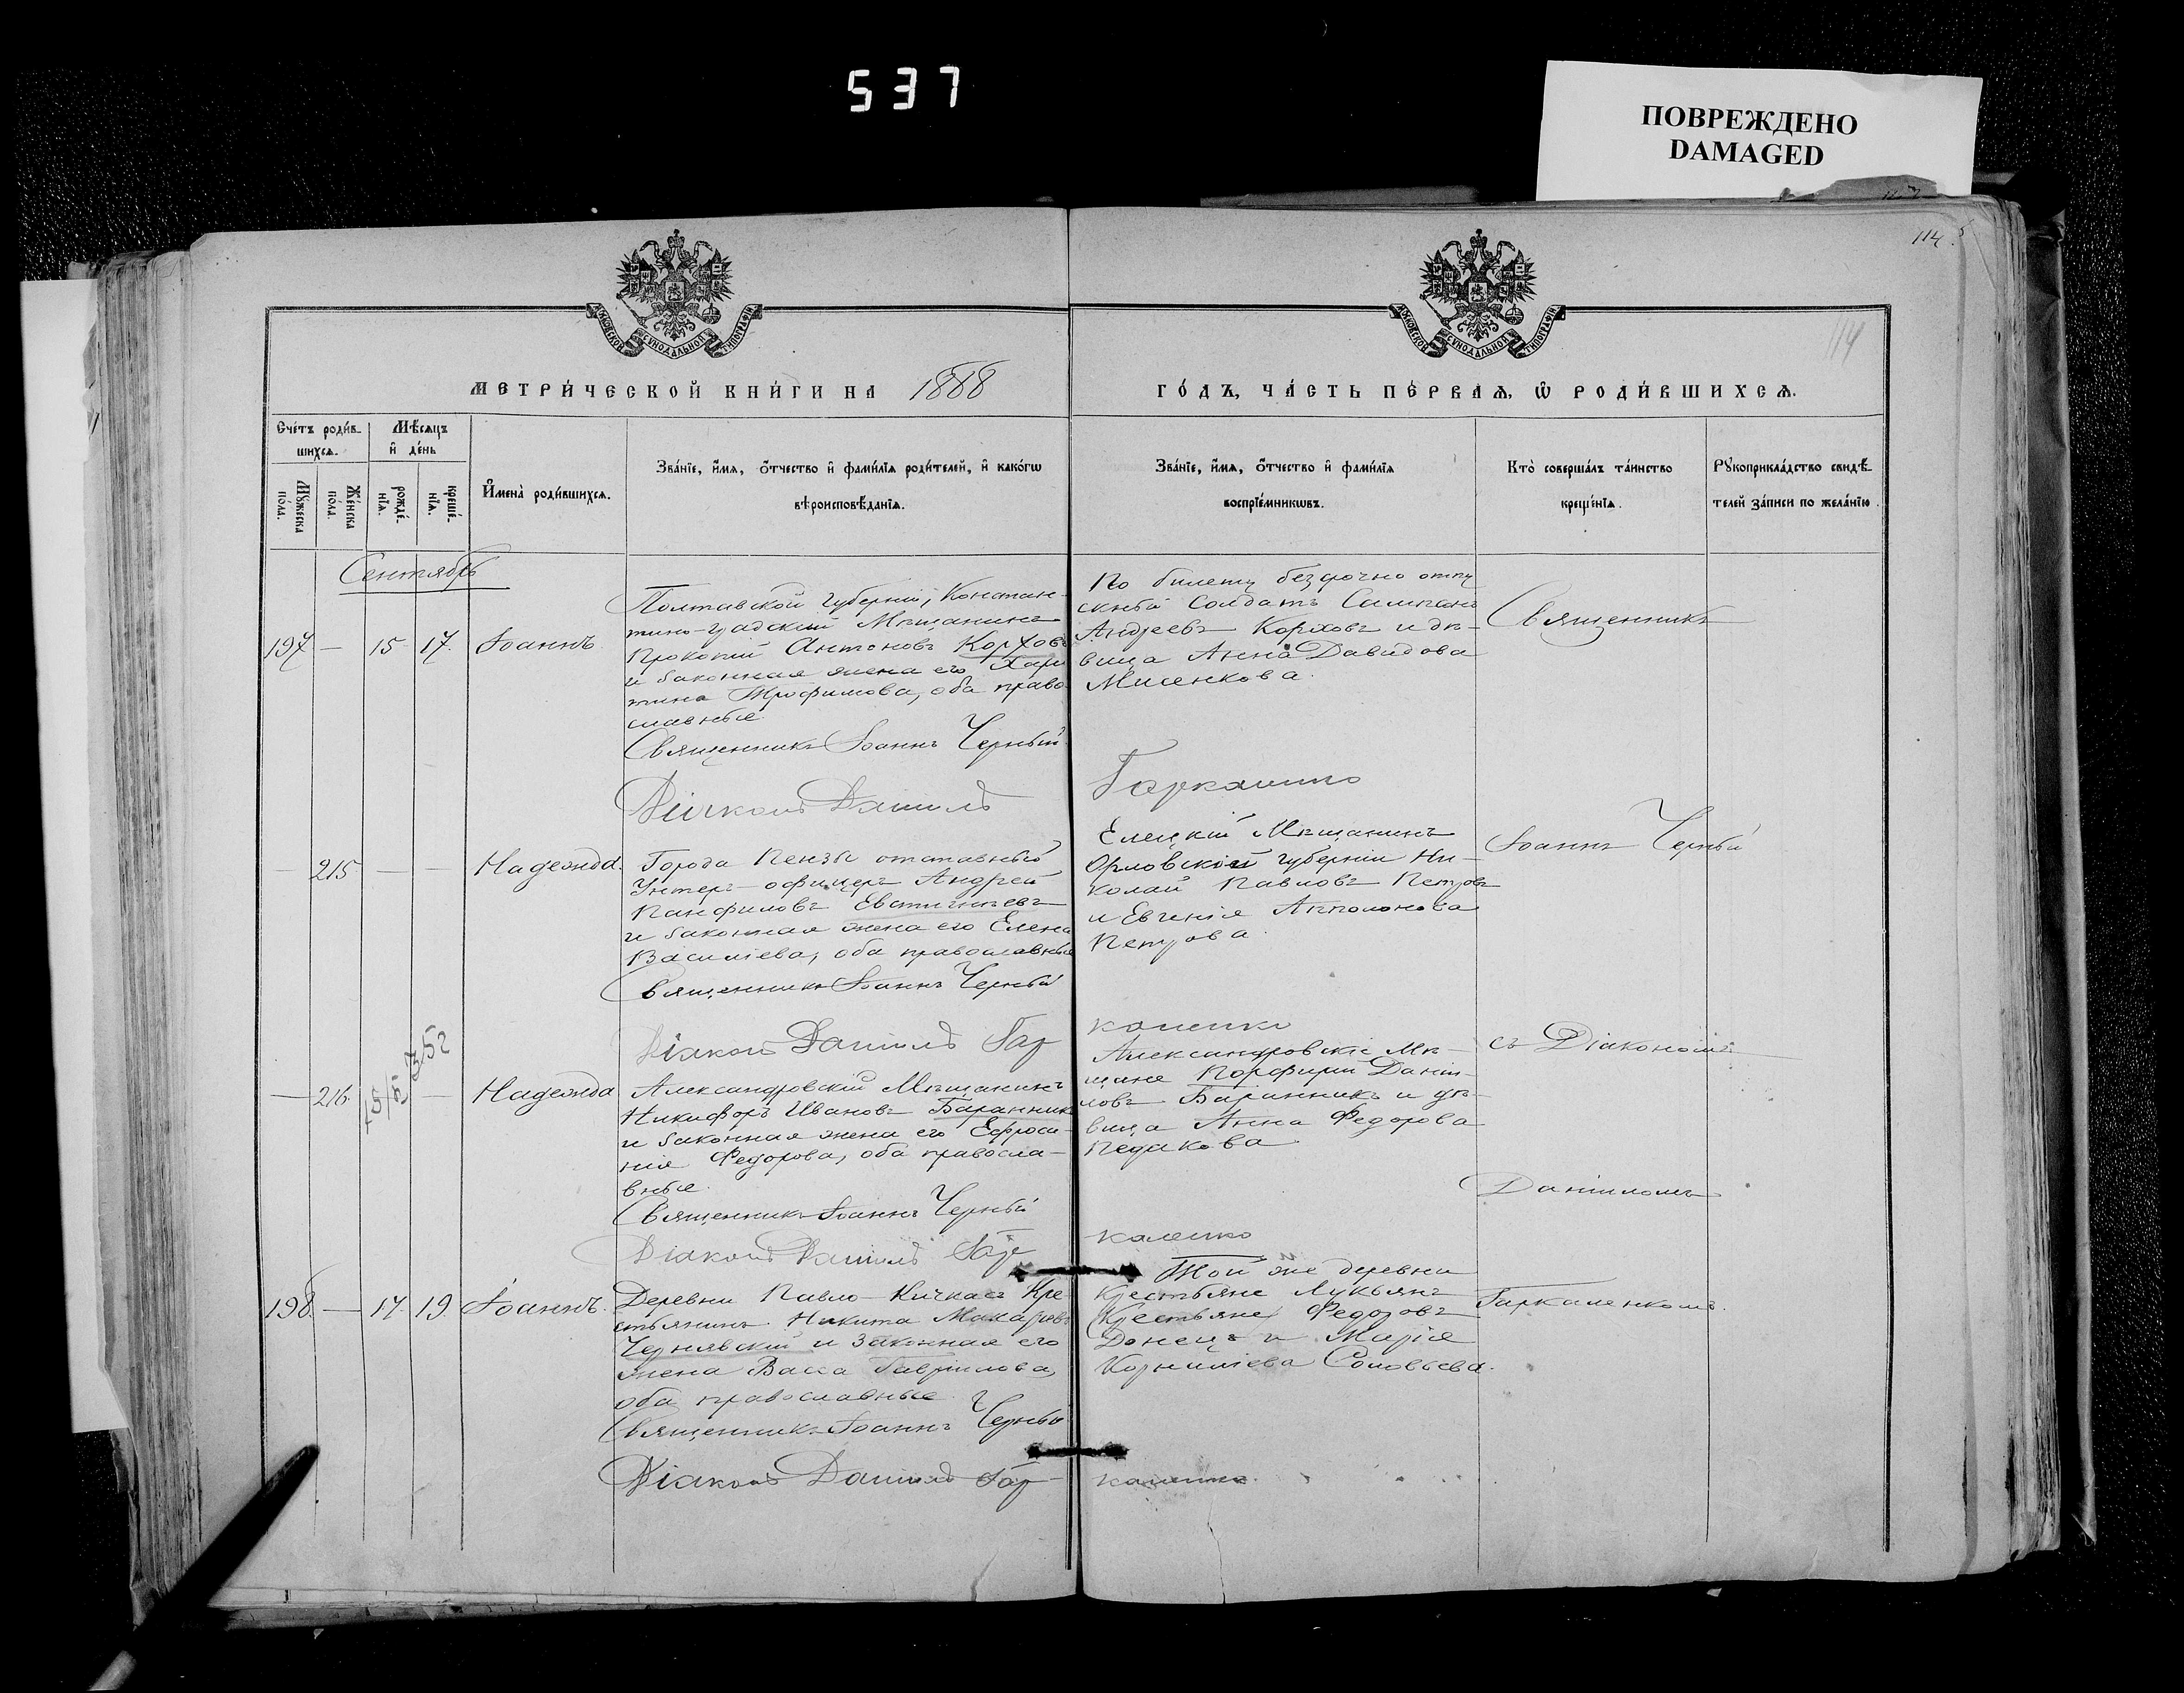 537
ПОВРЕЖДЕНО
DAMAGED
114
114
МОСКОВСКОЙ СУНОДАЛЬНОЙ ТИПОГРАФІИ
МОСКОВСКОЙ СУНОДАЛЬНОЙ ТИПОГРАФІИ
МЕТРИ́ЧЕСКОЙ КНИ́ГИ НА 1888
ГО́ДЪ, ЧА́СТЬ ПЕ́РВАѦ, Ѡ҆ РОДИ́ВШИХСѦ.
Сче́тъ роди́в-
шихсѧ.
Мꙋ́жеска
по́ла.
Же́нска
по́ла.
Мѣ́сѧцъ
и҆ де́нь
рожде́-
нїѧ.
креще́-
нїѧ.
И҆мена̀ роди́вшихсѧ.
Зва́нїе, и҆́мѧ, о҆́тчество и҆ фами́лїѧ роди́телей, и҆ како́гѡ
вѣроисповѣ́данїѧ.
Зва́нїе, и҆́мѧ, о҆́тчество и҆ фами́лїѧ
воспрїе́мникѡвъ.
Кто̀ соверша́лъ та́инство
креще́нїѧ.
Рꙋкоприкла́дство свидѣ́-
телей за́писи по жела́нїю.
Сентябрь
197 — 15 17. Іоаннъ.
Полтавской губерніи, Констан-
тино-градскій Мѣщанинъ
Прокопій Антоновъ Корховъ
и законная жена его Хари
тина Трофимова, оба право-
славные.
Священникъ Іоаннъ Черный.
Діаконъ Даніилъ
По билету безсрочно отпу
скный Солдатъ
Андреевъ Корховъ и дѣ-
вица Анна Давидова
Мисенкова.
Гаркаленко
Священникъ
— 215 — — Надежда.
Города Пензы отставный
Унтеръ-офицеръ Андрей
Панфиловъ Евстигнѣевъ
и законная жена его Елена
Василіева, оба православные
Священникъ Іоаннъ Черный
Діаконъ Даніилъ Гар
Елецкій Мѣщанинъ
Орловской губерніи Ни-
колай Павловъ Петровъ
и Евгенія Апполонова
Петрова.
каленко
Іоаннъ Черный
— 216. — Надежда
Александровскій Мѣщанинъ
Никифоръ Ивановъ Баранникъ
и законная жена его Ефроси-
нія Федорова, оба правосла-
вные.
Священникъ Іоаннъ Черный
Діаконъ Даніилъ Гар
Александровскіе Мѣ-
щане Порфирій Даніи-
ловъ Баранникъ и дѣ-
вица Анна Федорова
Педакова.
каленко
съ Діакономъ
Даніиломъ
198. — 17. 19. Іоаннъ.
Деревни Павло-Кичкасъ Кре
стьянинъ Никита Макаровъ
Чернявскій и законная его
жена Васса Гавріилова,
оба православные.
Священникъ Іоаннъ Черный
Діаконъ Даніилъ Гар
Той же деревни
Крестьяне Лукьянъ
Крестьяне Федоровъ
Донецъ и Марія
Корниліева Соловьева.
каленко.
Гаркаленкомъ.